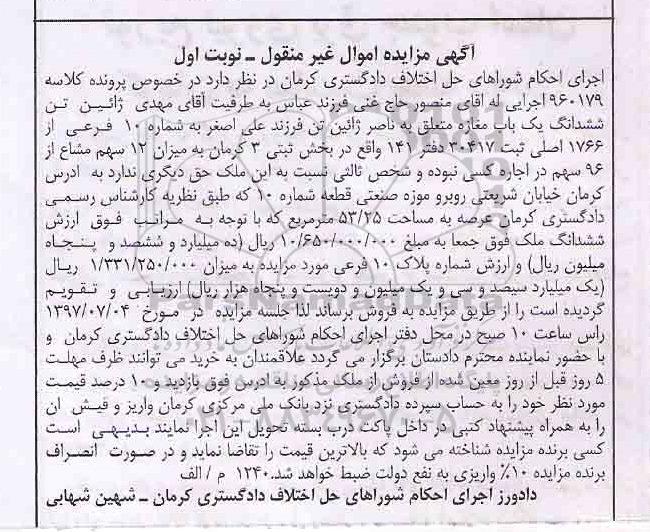 آگهی مزایده اموال غیر منقول ـ نوبت اول
اجرای احکام شوراهای حل اختلاف دادگستری کرمان در نظر دارد در خصوص پرونده کلاسه
۹۶۰۱۷۹ اجرایی له آقای منصور حاج غنی فرزند عباس به طرفیت آقای مهدی ژائین تن
ششدانگ یک باب مغازه متعلق به ناصر ژائین تن فرزند علی اصغر به شماره ۱۰ فرعی از
۱۷۶۶ اصلی ثبت ۳۰۴۱۷ دفتر ۱۴۱ واقع در بخش ثبتی ۳ کرمان به میزان ۱۲ سهم مشاع از
۹۶ سهم در اجاره کسی نبوده و شخص ثالثی نسبت به این ملک حق دیگری ندارد به ادرس
کرمان خیابان شریعتی روبرو موزه صنعتی قطعه شماره ۱۰ که طبق نظریه کارشناس رسمی
دادگستری کرمان عرصه به مساحت ۵۳/۲۵ مترمربع که با توجه به مراتب فوق ارزش
ششدانگ ملک فوق جمعا به مبلغ ۱۰/۶۵۰/۰۰۰/۰۰۰ ریال (ده میلیارد و ششصد و پنجاه
میلیون ریال) و ارزش شماره پلاک ۱۰ فرعی مورد مزایده به میزان ۱/۳۳۱/۲۵۰/۰۰۰ ریال
(یک میلیارد سیصد و سی و یک میلیون و دویست و پنجاه هزار ریال) ارزیابی و تقویم
گردیده است را از طریق مزایده به فروش برساند لذا جلسه مزایده در مورخ ۱۳۹۷/۰۷/۰۴
راس ساعت ۱۰ صبح در محل دفتر اجرای احکام شوراهای حل اختلاف دادگستری کرمان و
با حضور نماینده محترم دادستان برگزار می گردد علاقمندان به خرید می توانند ظرف مهلت
۵ روز قبل از روز معین شده از فروش از ملک مذکور به ادرس فوق بازدید و ۱۰ درصد قیمت
مورد نظر خود را به حساب سپرده دادگستری نزد بانک ملی مرکزی کرمان واریز و فیش ان
را به همراه پیشنهاد کتبی در داخل پاکت درب بسته تحویل این اجرا نمایند بدیهی است
کسی برنده مزایده شناخته می شود که بالاترین قیمت را تقاضا نماید و در صورت انصراف
برنده مزایده ۱۰٪ واریزی به نفع دولت ضبط خواهد شد.۱۲۴۰ م / الف
دادورز اجرای احکام شوراهای حل اختلاف دادگستری کرمان ـ شهین شهابی